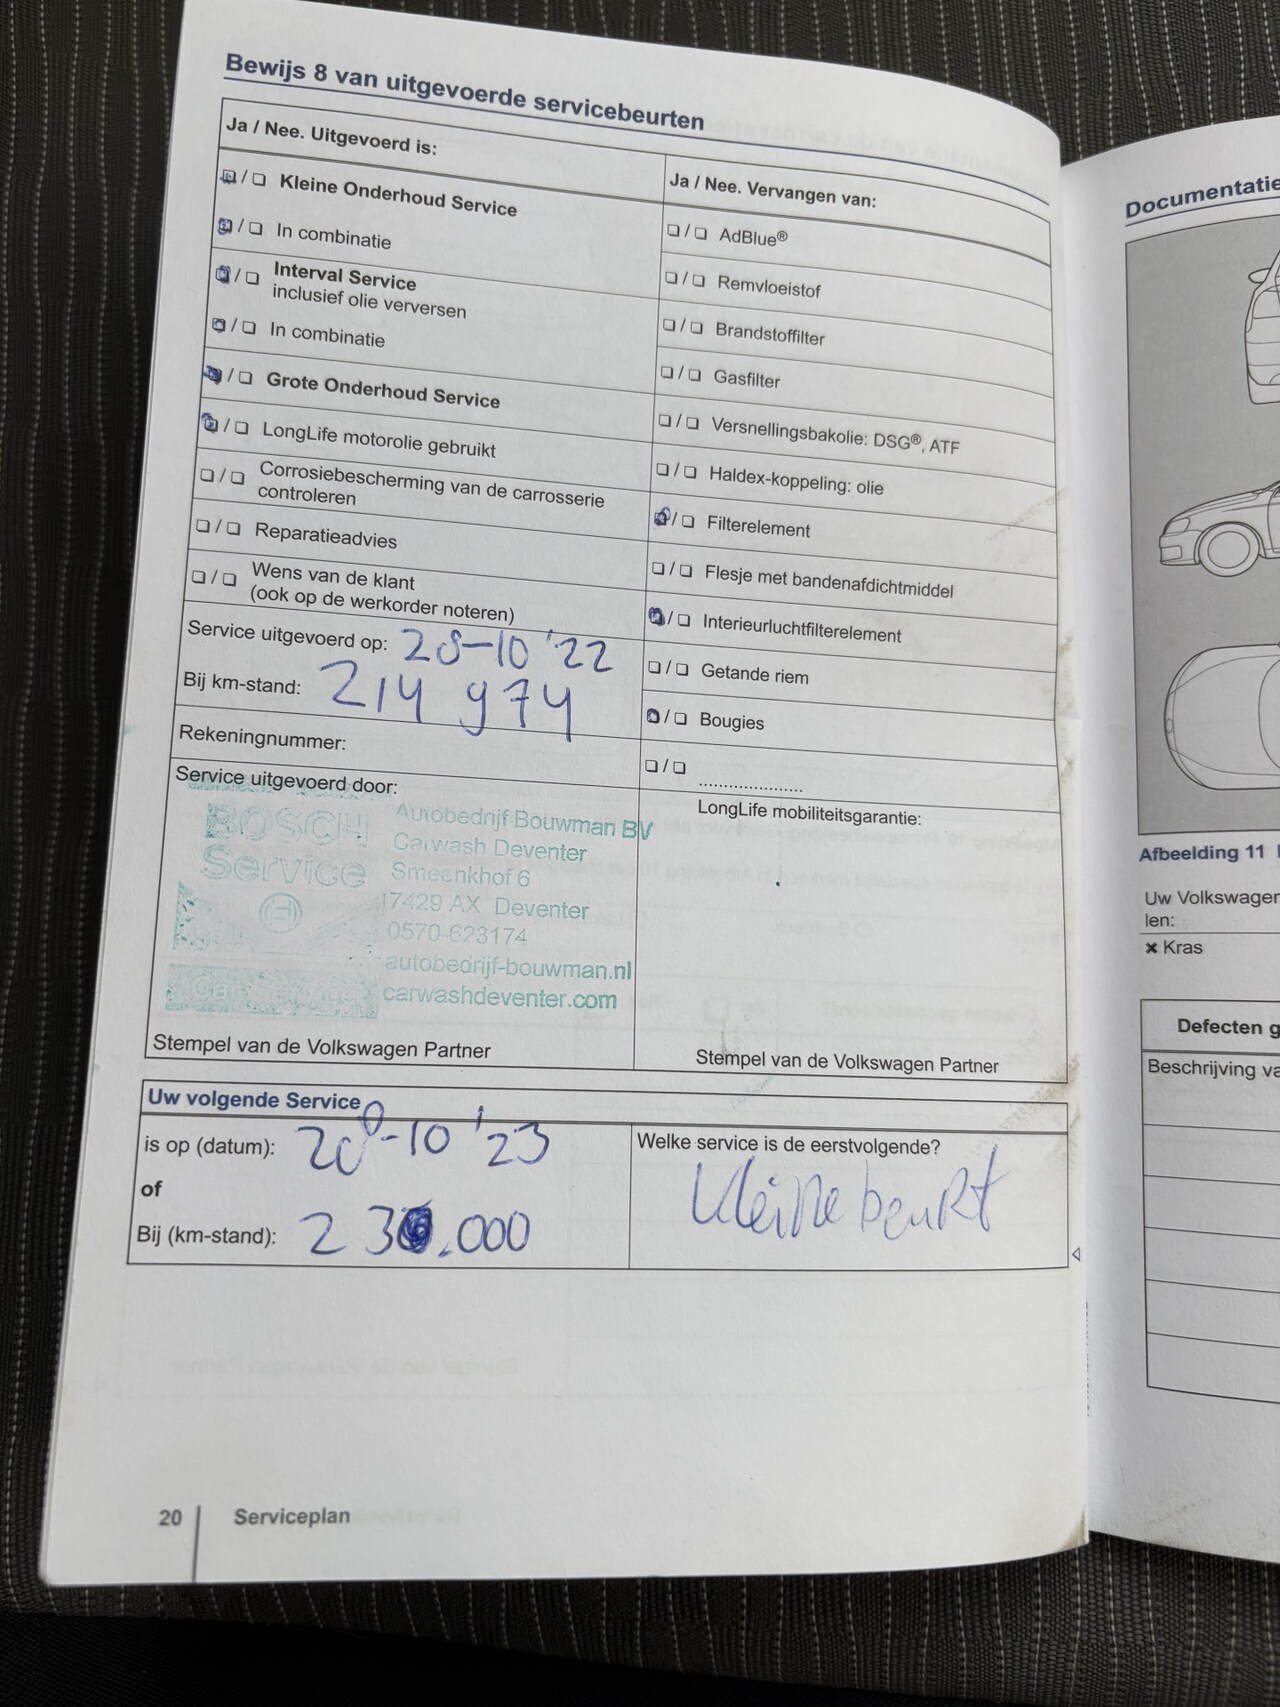 Bewijs 8 van uitgevoerde servicebeurten
Ja / Nee. Uitgevoerd is:
☐ / ❏ Kleine Onderhoud Service
☐ / ❏ In combinatie
☐ / ❏ Interval Service
inclusief olie verversen
☐ / ❏ In combinatie
☐ / ❏ Grote Onderhoud Service
☐ / ❏ LongLife motorolie gebruikt
❏ / ❏ Corrosiebescherming van de carrosserie
controleren
❏ / ❏ Reparatieadvies
❏ / ❏ Wens van de klant
(ook op de werkorder noteren)
Service uitgevoerd op: 28-10 '22
Bij km-stand: 214 974
Rekeningnummer:
Service uitgevoerd door:
BOSCH
Service
Car Service
Autobedrijf Bouwman BV
Carwash Deventer
Smeenkhof 6
7429 AX Deventer
0570-623174
autobedrijf-bouwman.nl
carwashdeventer.com
Stempel van de Volkswagen Partner
Ja / Nee. Vervangen van:
❏ / ❏ AdBlue®
❏ / ❏ Remvloeistof
❏ / ❏ Brandstoffilter
❏ / ❏ Gasfilter
❏ / ❏ Versnellingsbakolie: DSG®, ATF
❏ / ❏ Haldex-koppeling: olie
☐ / ❏ Filterelement
❏ / ❏ Flesje met bandenafdichtmiddel
☐ / ❏ Interieurluchtfilterelement
❏ / ❏ Getande riem
☐ / ❏ Bougies
❏ / ❏ .....................
LongLife mobiliteitsgarantie:
Stempel van de Volkswagen Partner
Uw volgende Service
is op (datum): 28-10 '23
of
Bij (km-stand): 230.000
Welke service is de eerstvolgende?
Kleine beurt
20 Serviceplan
Documentatie
Afbeelding 11
Uw Volkswagen
len:
× Kras
Defecten g
Beschrijving va